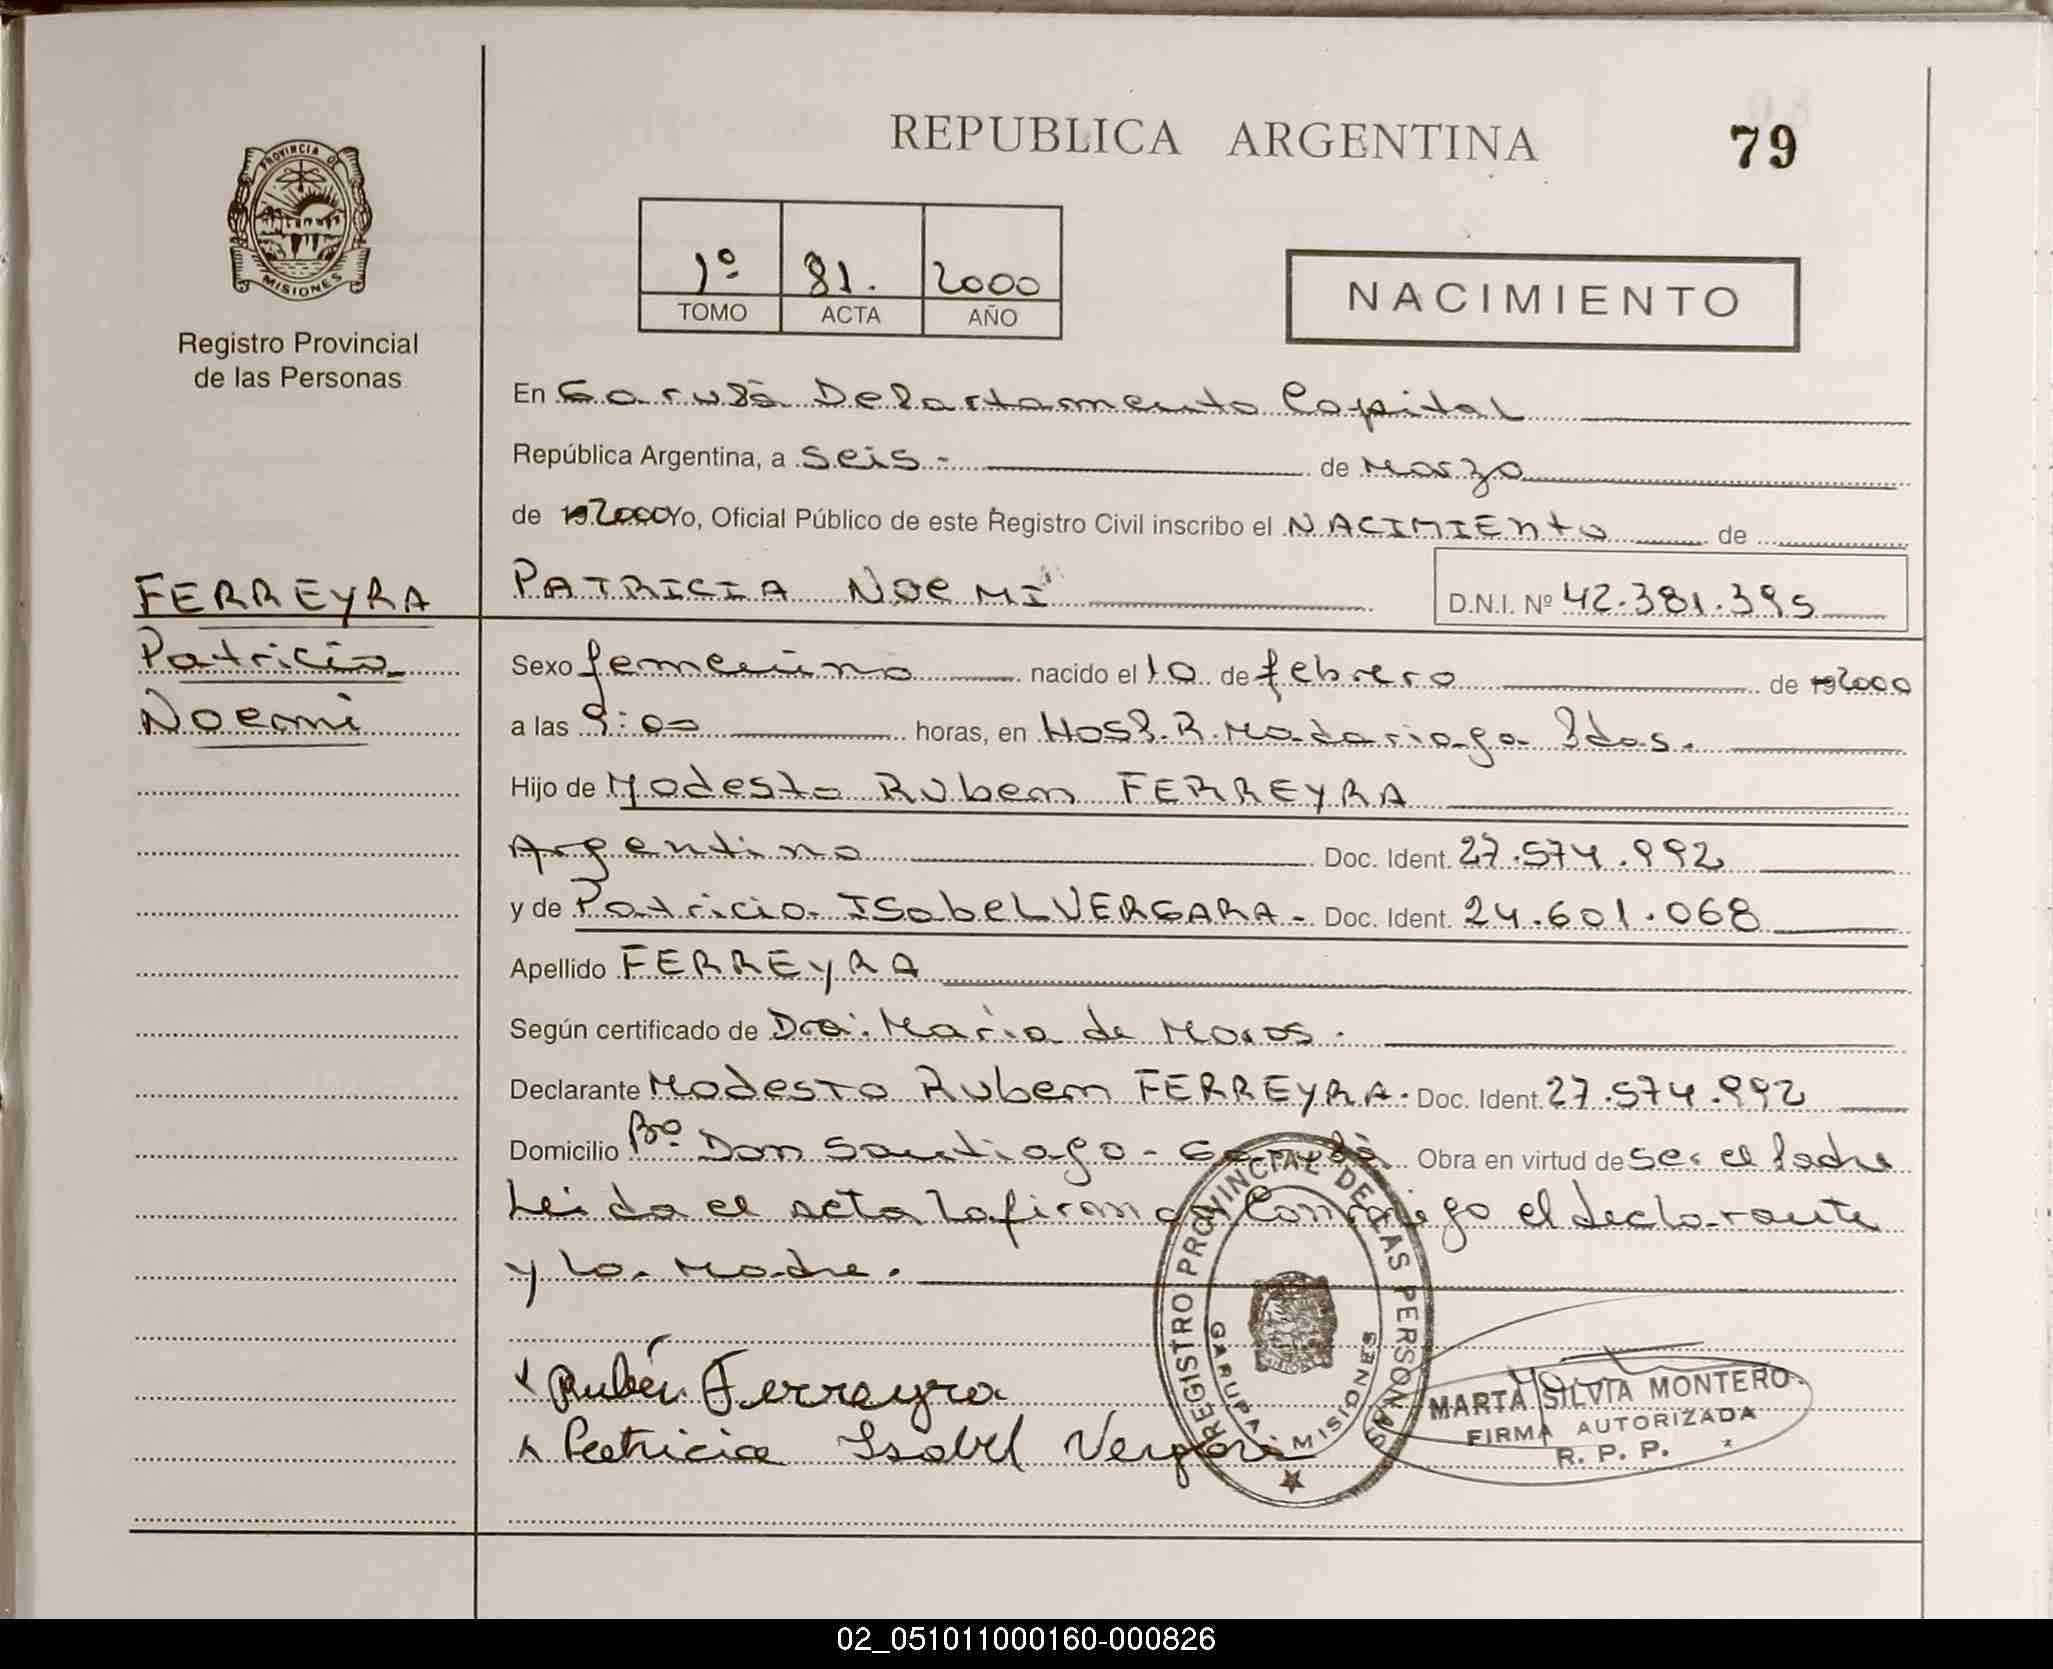 REPUBLICA ARGENTINA
79
PROVINCIA DE
MISIONES
Registro Provincial
de las Personas
1º 81. 2000
TOMO ACTA AÑO
NACIMIENTO
En Garupá Departamento Capital
República Argentina, a seis - de Marzo
de 192000 Yo, Oficial Público de este Registro Civil inscribo el NACIMIENTO de
FERREYRA
Patricia
Noemi
PATRICIA NOEMI
D.N.I. Nº 42.381.395
Sexo femenino nacido el 10 de febrero de 192000
a las 9:00 horas, en Hosp. R. Madariaga Pdas.
Hijo de Modesto Ruben FERREYRA
Argentino Doc. Ident. 27.574.992
y de Patricia ISabel VERGARA - Doc. Ident. 24.601.068
Apellido FERREYRA
Según certificado de Dra. Maria de
Declarante Modesto Ruben FERREYRA. Doc. Ident. 27.574.992
Domicilio Bº Don Santiago - Garupá. Obra en virtud de ser el Padre
Leida el acta la firman Conmigo el declarante
y la Madre.
Rubén Ferreyra
Patricia Isabel Vergara
REGISTRO PROVINCIAL DE LAS PERSONAS
GARUPA MISIONES
MARTA SILVIA MONTERO
FIRMA AUTORIZADA
R. P. P.
02_051011000160-000826